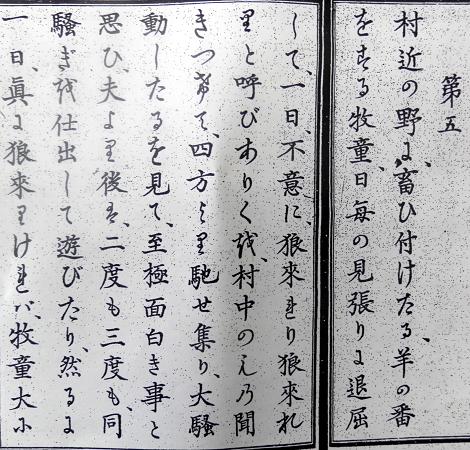 第五
村近の野に、畜ひ付けたる、羊の番
をする牧童、日毎の見張りに退屈
して、一日、不意に、狼來れり狼來れ
りと呼びありくを、村中のもの聞
きつけて、四方より馳せ集り、大騒
動したるを見て、至極面白き事と
思ひ、夫より後は、二度も三度も、同
騒ぎを仕出して遊びたり、然るに
一日、眞に狼來りければ、牧童大に